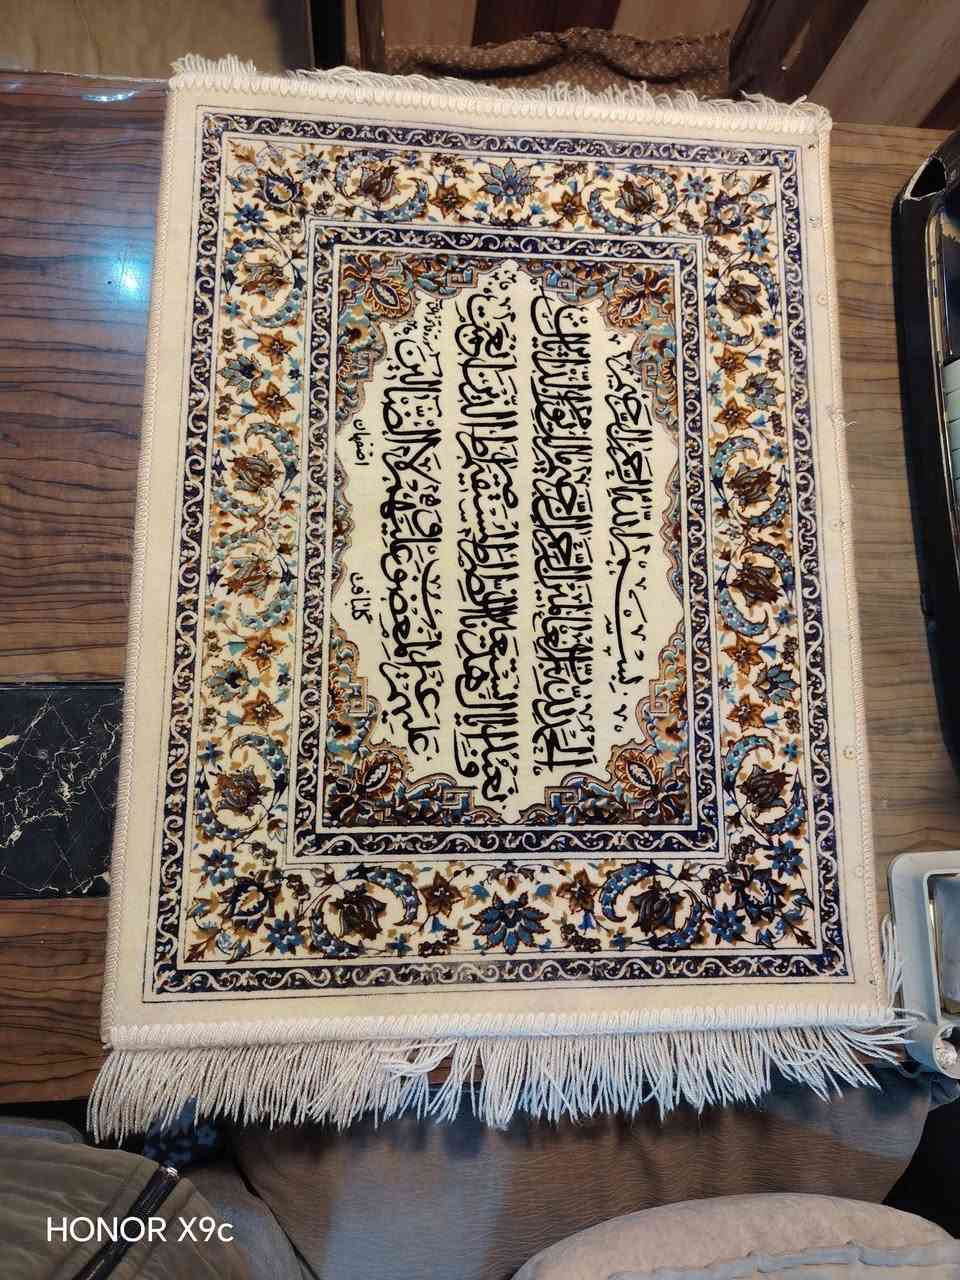 بِسْمِ اللَّهِ الرَّحْمَٰنِ الرَّحِيمِ
الْحَمْدُ لِلَّهِ رَبِّ الْعَالَمِينَ الرَّحْمَٰنِ الرَّحِيمِ مَالِكِ يَوْمِ الدِّينِ إِيَّاكَ
نَعْبُدُ وَإِيَّاكَ نَسْتَعِينُ اهْدِنَا الصِّرَاطَ الْمُسْتَقِيمَ صِرَاطَ الَّذِينَ أَنْعَمْتَ
عَلَيْهِمْ غَيْرِ الْمَغْضُوبِ عَلَيْهِمْ وَلَا الضَّالِّينَ
اصفهان
HONOR X9c